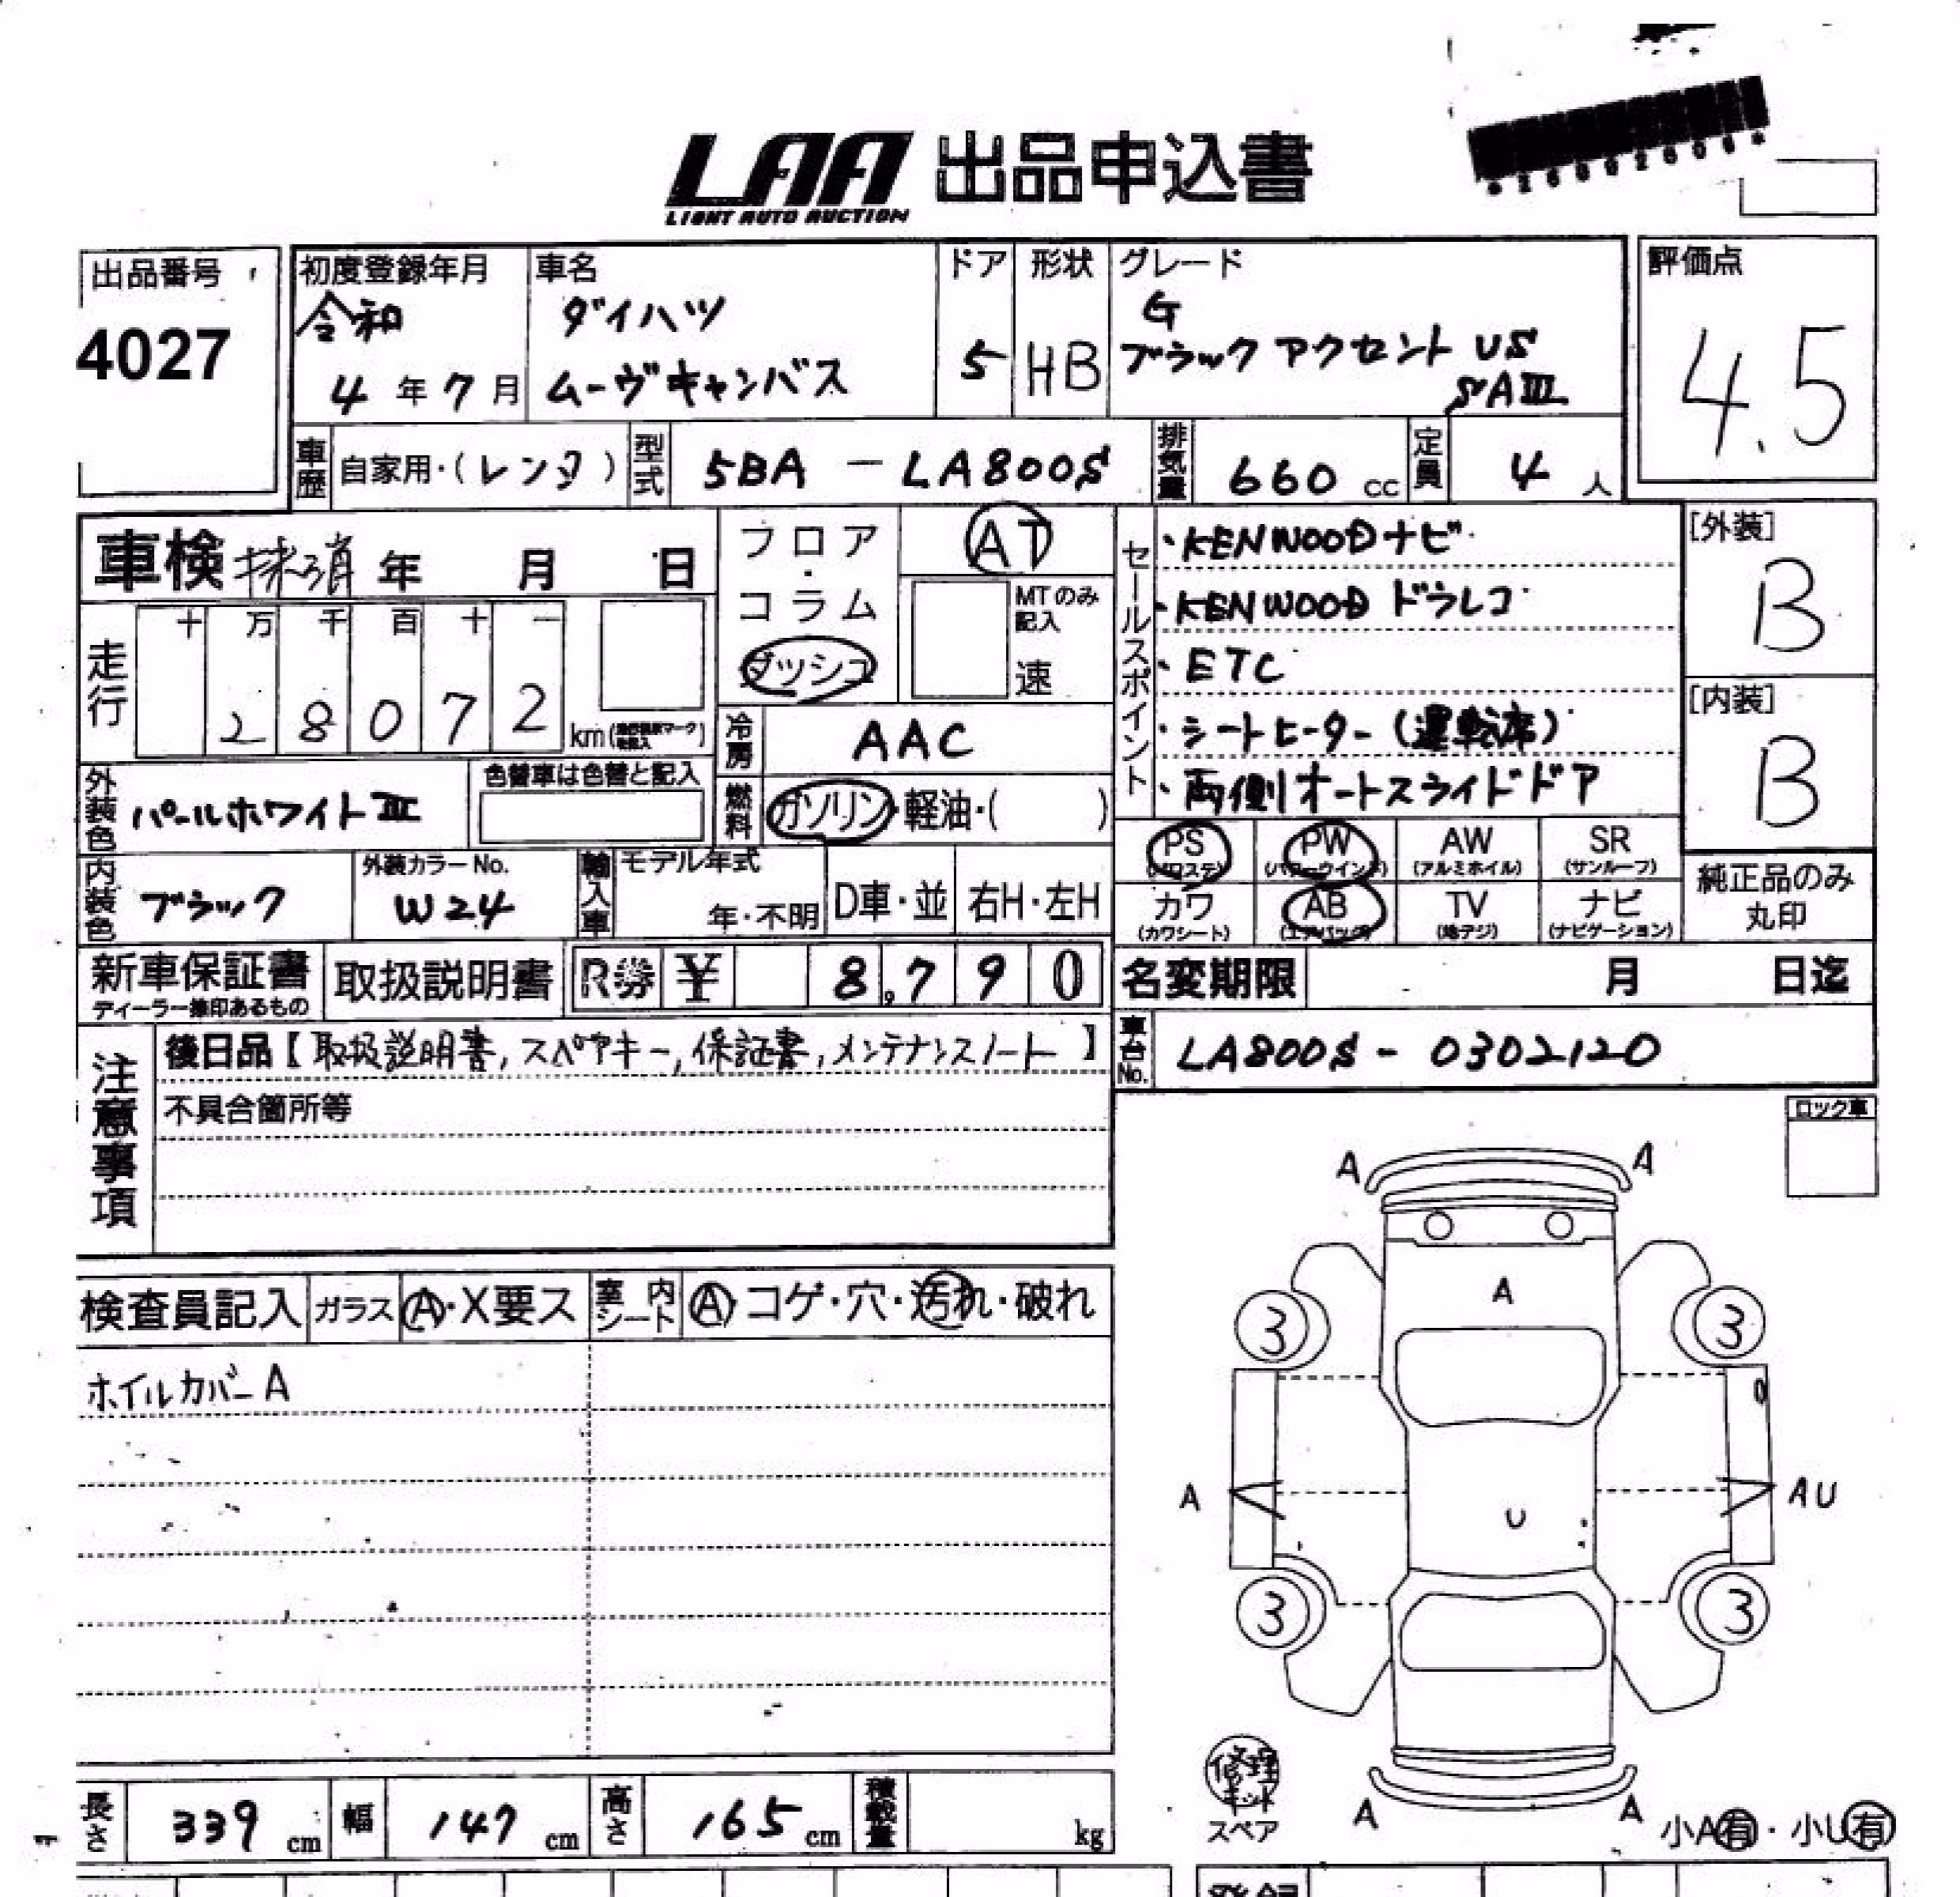 LAA 出品申込書
LIGHT AUTO AUCTION
出品番号
4027
初度登録年月
令和
4年7月
車名
ダイハツ
ムーヴキャンバス
ドア
5
形状
HB
グレード
G
ブラックアクセント VS
SAIII
評価点
4.5
車歴
自家用・(レンタ)
型式
5BA - LA800S
排気量
660 cc
定員
4 人
車検 抹消 年 月 日
フロア
・
コラム
ダッシュ
AT
MTのみ
記入
速
セールスポイント
・KENWOODナビ
・KENWOOD ドラレコ
・ETC
・シートヒーター(運転席)
・両側オートスライドドア
[外装]
B
[内装]
B
走行
十 万 千 百 十 一
2 8 0 7 2
km
冷房
AAC
外装色
パールホワイトIII
色替車は色替と記入
燃料
ガソリン・軽油・( )
PS
(パワステ)
PW
(パワーウインド)
AW
(アルミホイル)
SR
(サンルーフ)
カワ
(カワシート)
AB
(エアバック)
TV
(地デジ)
ナビ
(ナビゲーション)
純正品のみ
丸印
内装色
ブラック
外装カラーNo.
W24
輸入車
モデル年式
年・不明
D車・並
右H・左H
新車保証書
ディーラー捺印あるもの
取扱説明書
R券 ¥ 8,790
名変期限 月 日迄
車台No.
LA800S - 0302120
注意事項
後日品【取扱説明書,スペアキー,保証書,メンテナンスノート】
不具合箇所等
ロック車
検査員記入
ガラス
A・X要ス
室内シート
A・コゲ・穴・汚れ・破れ
ホイルカバーA
A A
A
3 3
A
U
AU
3 3
A A
修理
キット
スペア
小A有・小U有
長さ
339 cm
幅
147 cm
高さ
165 cm
積載量
kg